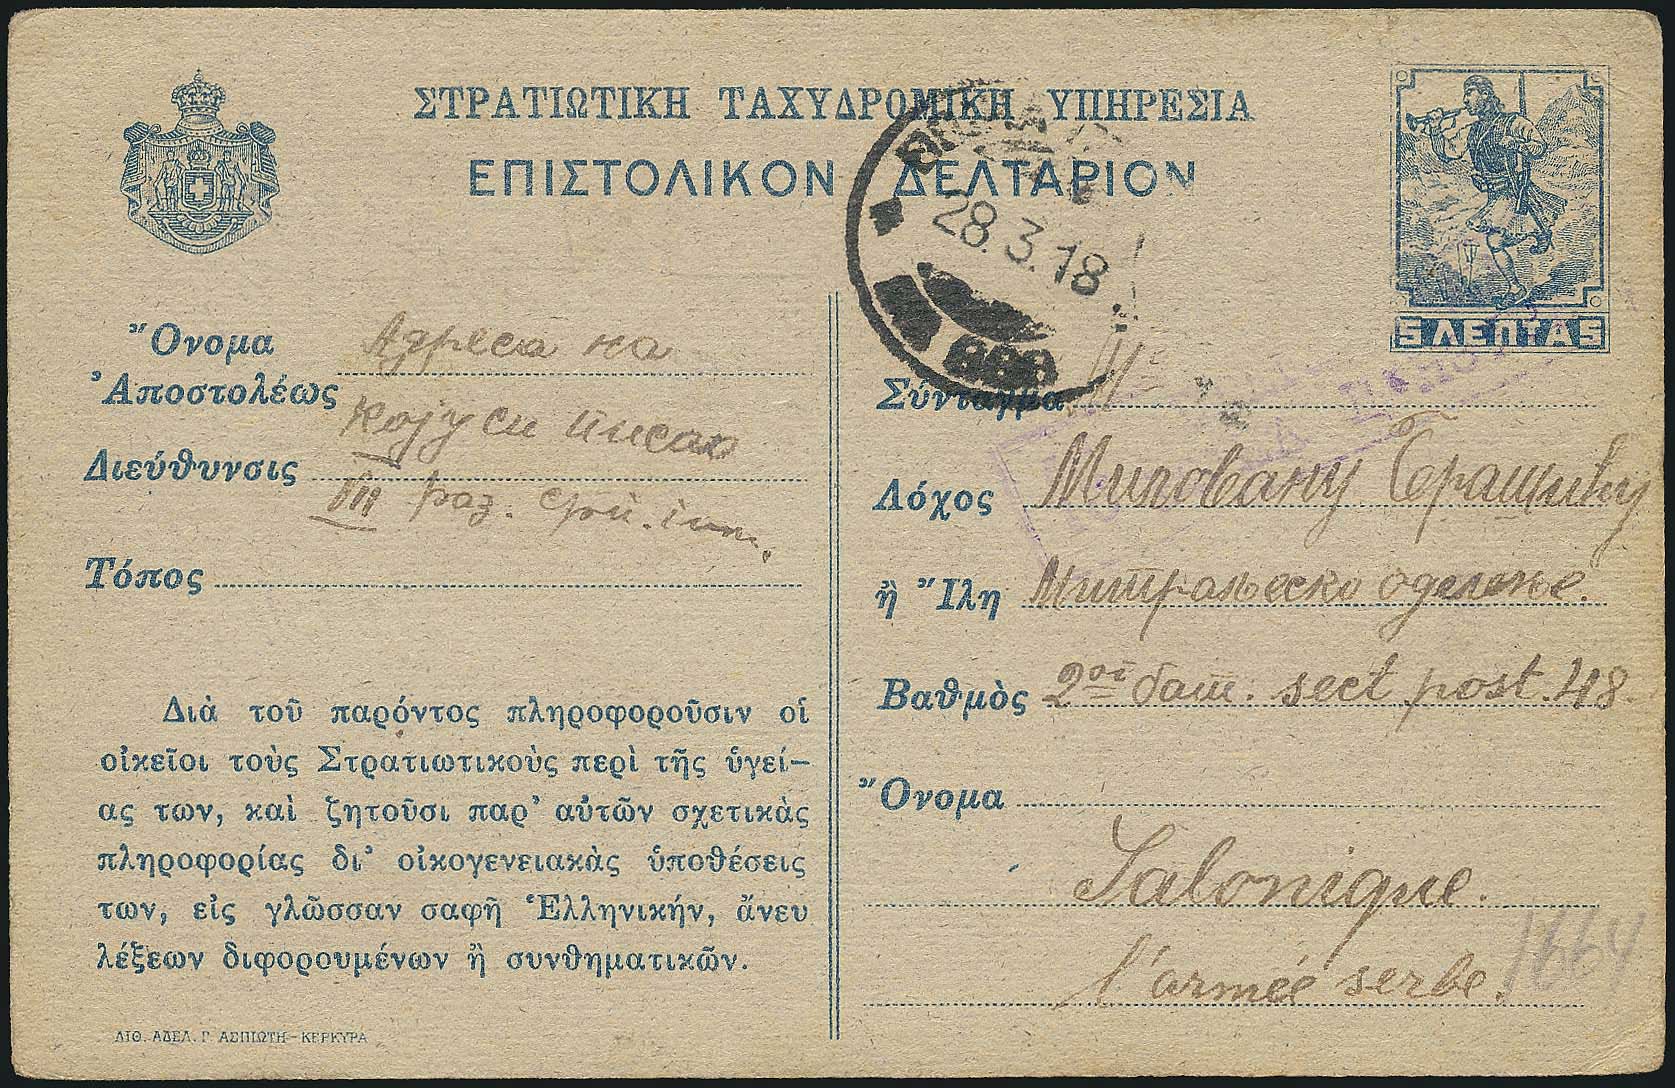 ΣΤΡΑΤΙΩΤΙΚΗ ΤΑΧΥΔΡΟΜΙΚΗ ΥΠΗΡΕΣΙΑ
ΕΠΙΣΤΟΛΙΚΟΝ ΔΕΛΤΑΡΙΟΝ
5 ΛΕΠΤΑ 5
28.3.18
Ὄνομα
Ἀποστολέως
Адреса на
којуси писао
Διεύθυνσις
III раз.
Τόπος
Διὰ τοῦ παρόντος πληροφοροῦσιν οἱ
οἰκεῖοι τοὺς Στρατιωτικοὺς περὶ τῆς ὑγεί-
ας των, καὶ ζητοῦσι παρ' αὐτῶν σχετικὰς
πληροφορίας δι' οἰκογενειακὰς ὑποθέσεις
των, εἰς γλῶσσαν σαφῆ Ἑλληνικήν, ἄνευ
λέξεων διφορουμένων ἢ συνθηματικῶν.
ΛΙΘ. ΑΔΕΛ. Γ. ΑΣΠΙΩΤΗ-ΚΕΡΚΥΡΑ
Σύνταγμα
Λόχος Миловану
ἢ Ἴλη Митраљеско одељење.
Βαθμὸς 2ог бат. sect post. 418.
Ὄνομα
Salonique.
l'armée serbe.
1664